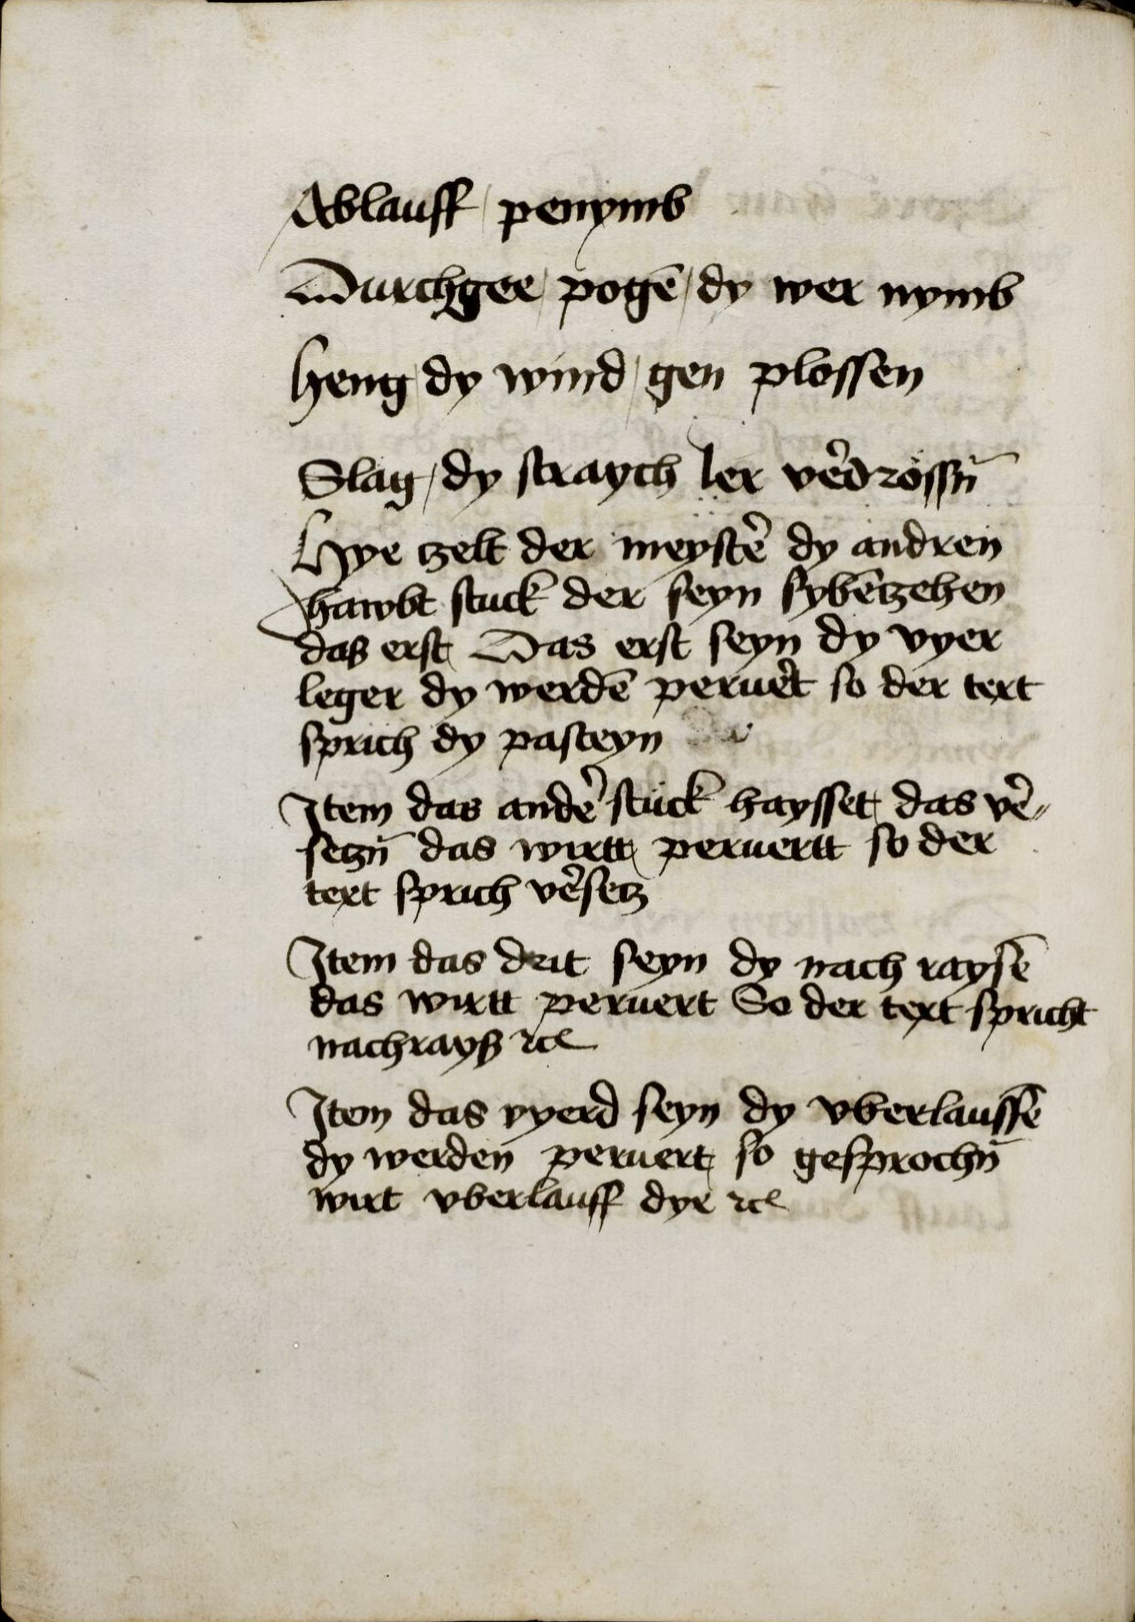 Ablauff / penymb
Durchgee / pogē / dy wer nymb
Heng / dy wind / gen plossen
Slag / dy straych ler vẽdrossn̄
Hye tzelt der meystẽ dy andren
hawbt stuck der seyn sybētzehen
daß erst Das erst seyn dy vyer
leger dy werdē peruẽt so der text
sprich dy pasteyn
Item das andẽ stuck haysset das vẽ„
setzn̄ das wirtt peruertt so der
text sprich vẽsetz
Item das drit seyn dy nach raysē
das wirtt peruert So der text spricht
nachrayß ꝛcꝭ
Item das vyerd seyn dy vberlauffē
dy werden peruert so gesprochn̄
wirt vberlauff dye ꝛcꝭ